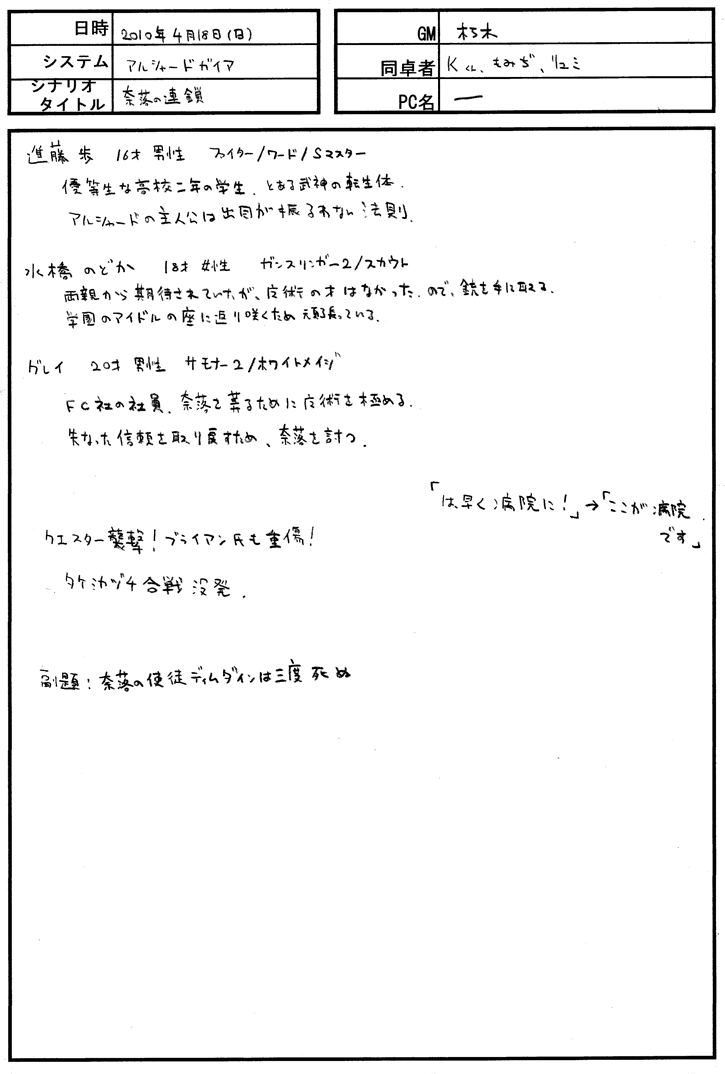 日時 2010年4月18日(日)
システム アルシャードガイア
シナリオタイトル 奈落の連鎖
GM 朽木
同卓者 Kくん、もみぢ、リュミ
PC名 ー
進藤 歩 16才 男性 ファイター/ワード/Sマスター
優等生な高校二年の学生。とある武神の転生体。
アルシャードの主人公は出目が振るわない法則。
水橋 のどか 18才 女性 ガンスリンガー2/スカウト
両親から期待されていたが、魔術の才はなかった。ので、銃を手に取る。
学園のアイドルの座に返り咲くため頑張っている。
グレイ 20才 男性 サモナー2/ホワイトメイジ
FC社の社員。奈落を葬るために魔術を極める。
失なった信頼を取り戻すため、奈落を討つ。
「は早く病院に!」→「ここが病院
です」
クエスター襲撃!ブライアン氏も重傷!
タケミカヅチ合戦 没発。
副題:奈落の使徒ディムダインは三度死ぬ